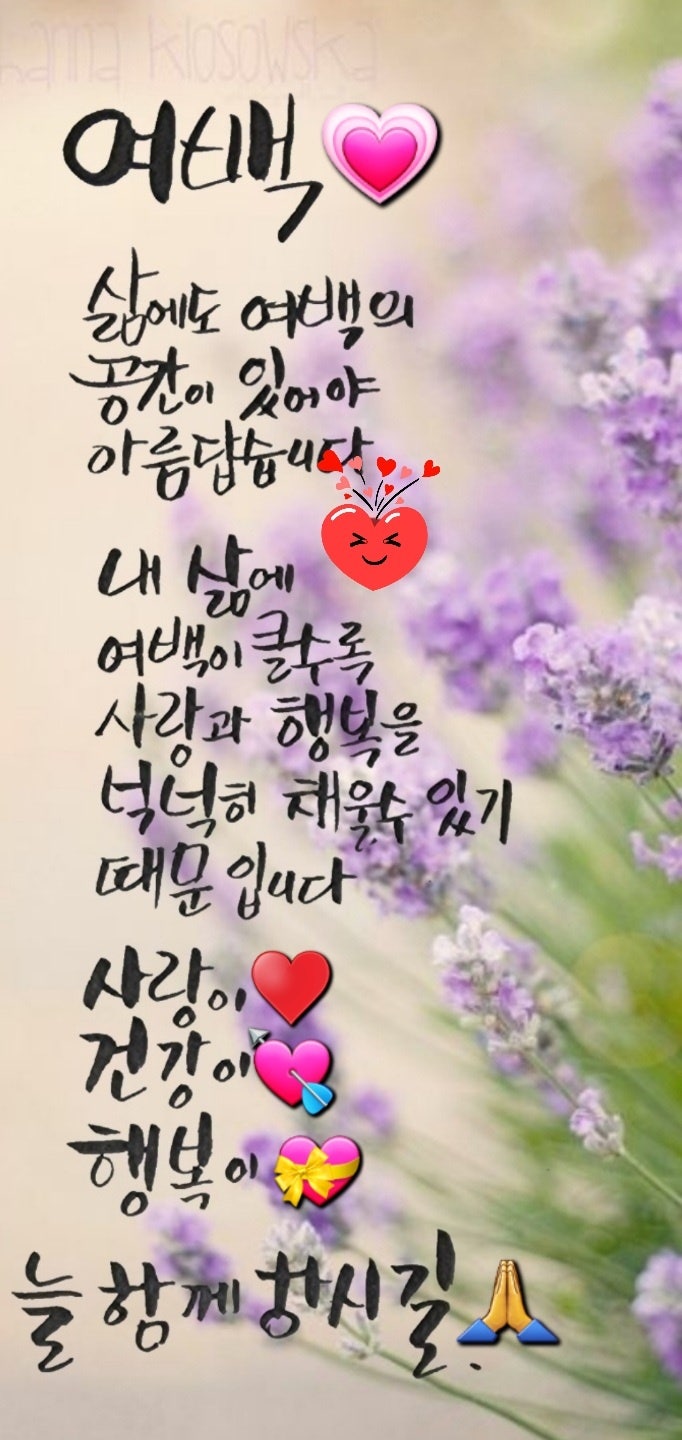 hanna klosowska
여백
삶에도 여백의
공간이 있어야
아름답습니다
내 삶에
여백이 클수록
사랑과 행복을
넉넉히 채울수 있기
때문 입니다
사랑이
건강이
행복이
늘 함께 하시길.